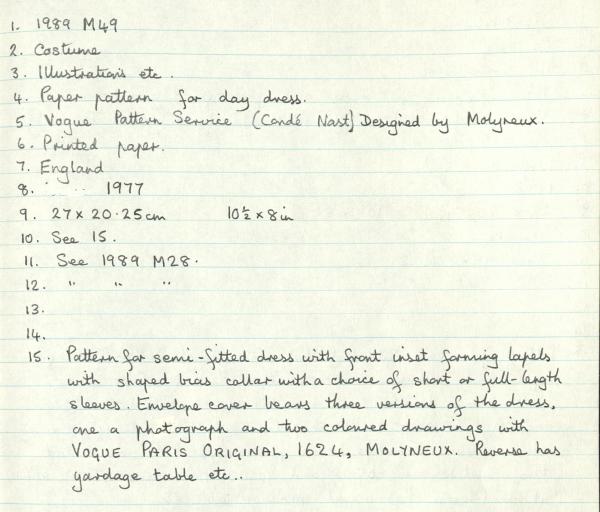 1. 1989 M49
2. Costume
3. Illustrations etc.
4. Paper pattern for day dress.
5. Vogue Pattern Service (Condé Nast) Designed by Molyneux.
6. Printed paper.
7. England
8. 1977
9. 27 x 20.25cm 10½ x 8in
10. See 15.
11. See 1989 M28.
12. " " "
13.
14.
15. Pattern for semi-fitted dress with front inset forming lapels
with shaped bias collar with a choice of short or full-length
sleeves. Envelope cover bears three versions of the dress,
one a photograph and two coloured drawings with
VOGUE PARIS ORIGINAL, 1624, MOLYNEUX. Reverse has
yardage table etc..